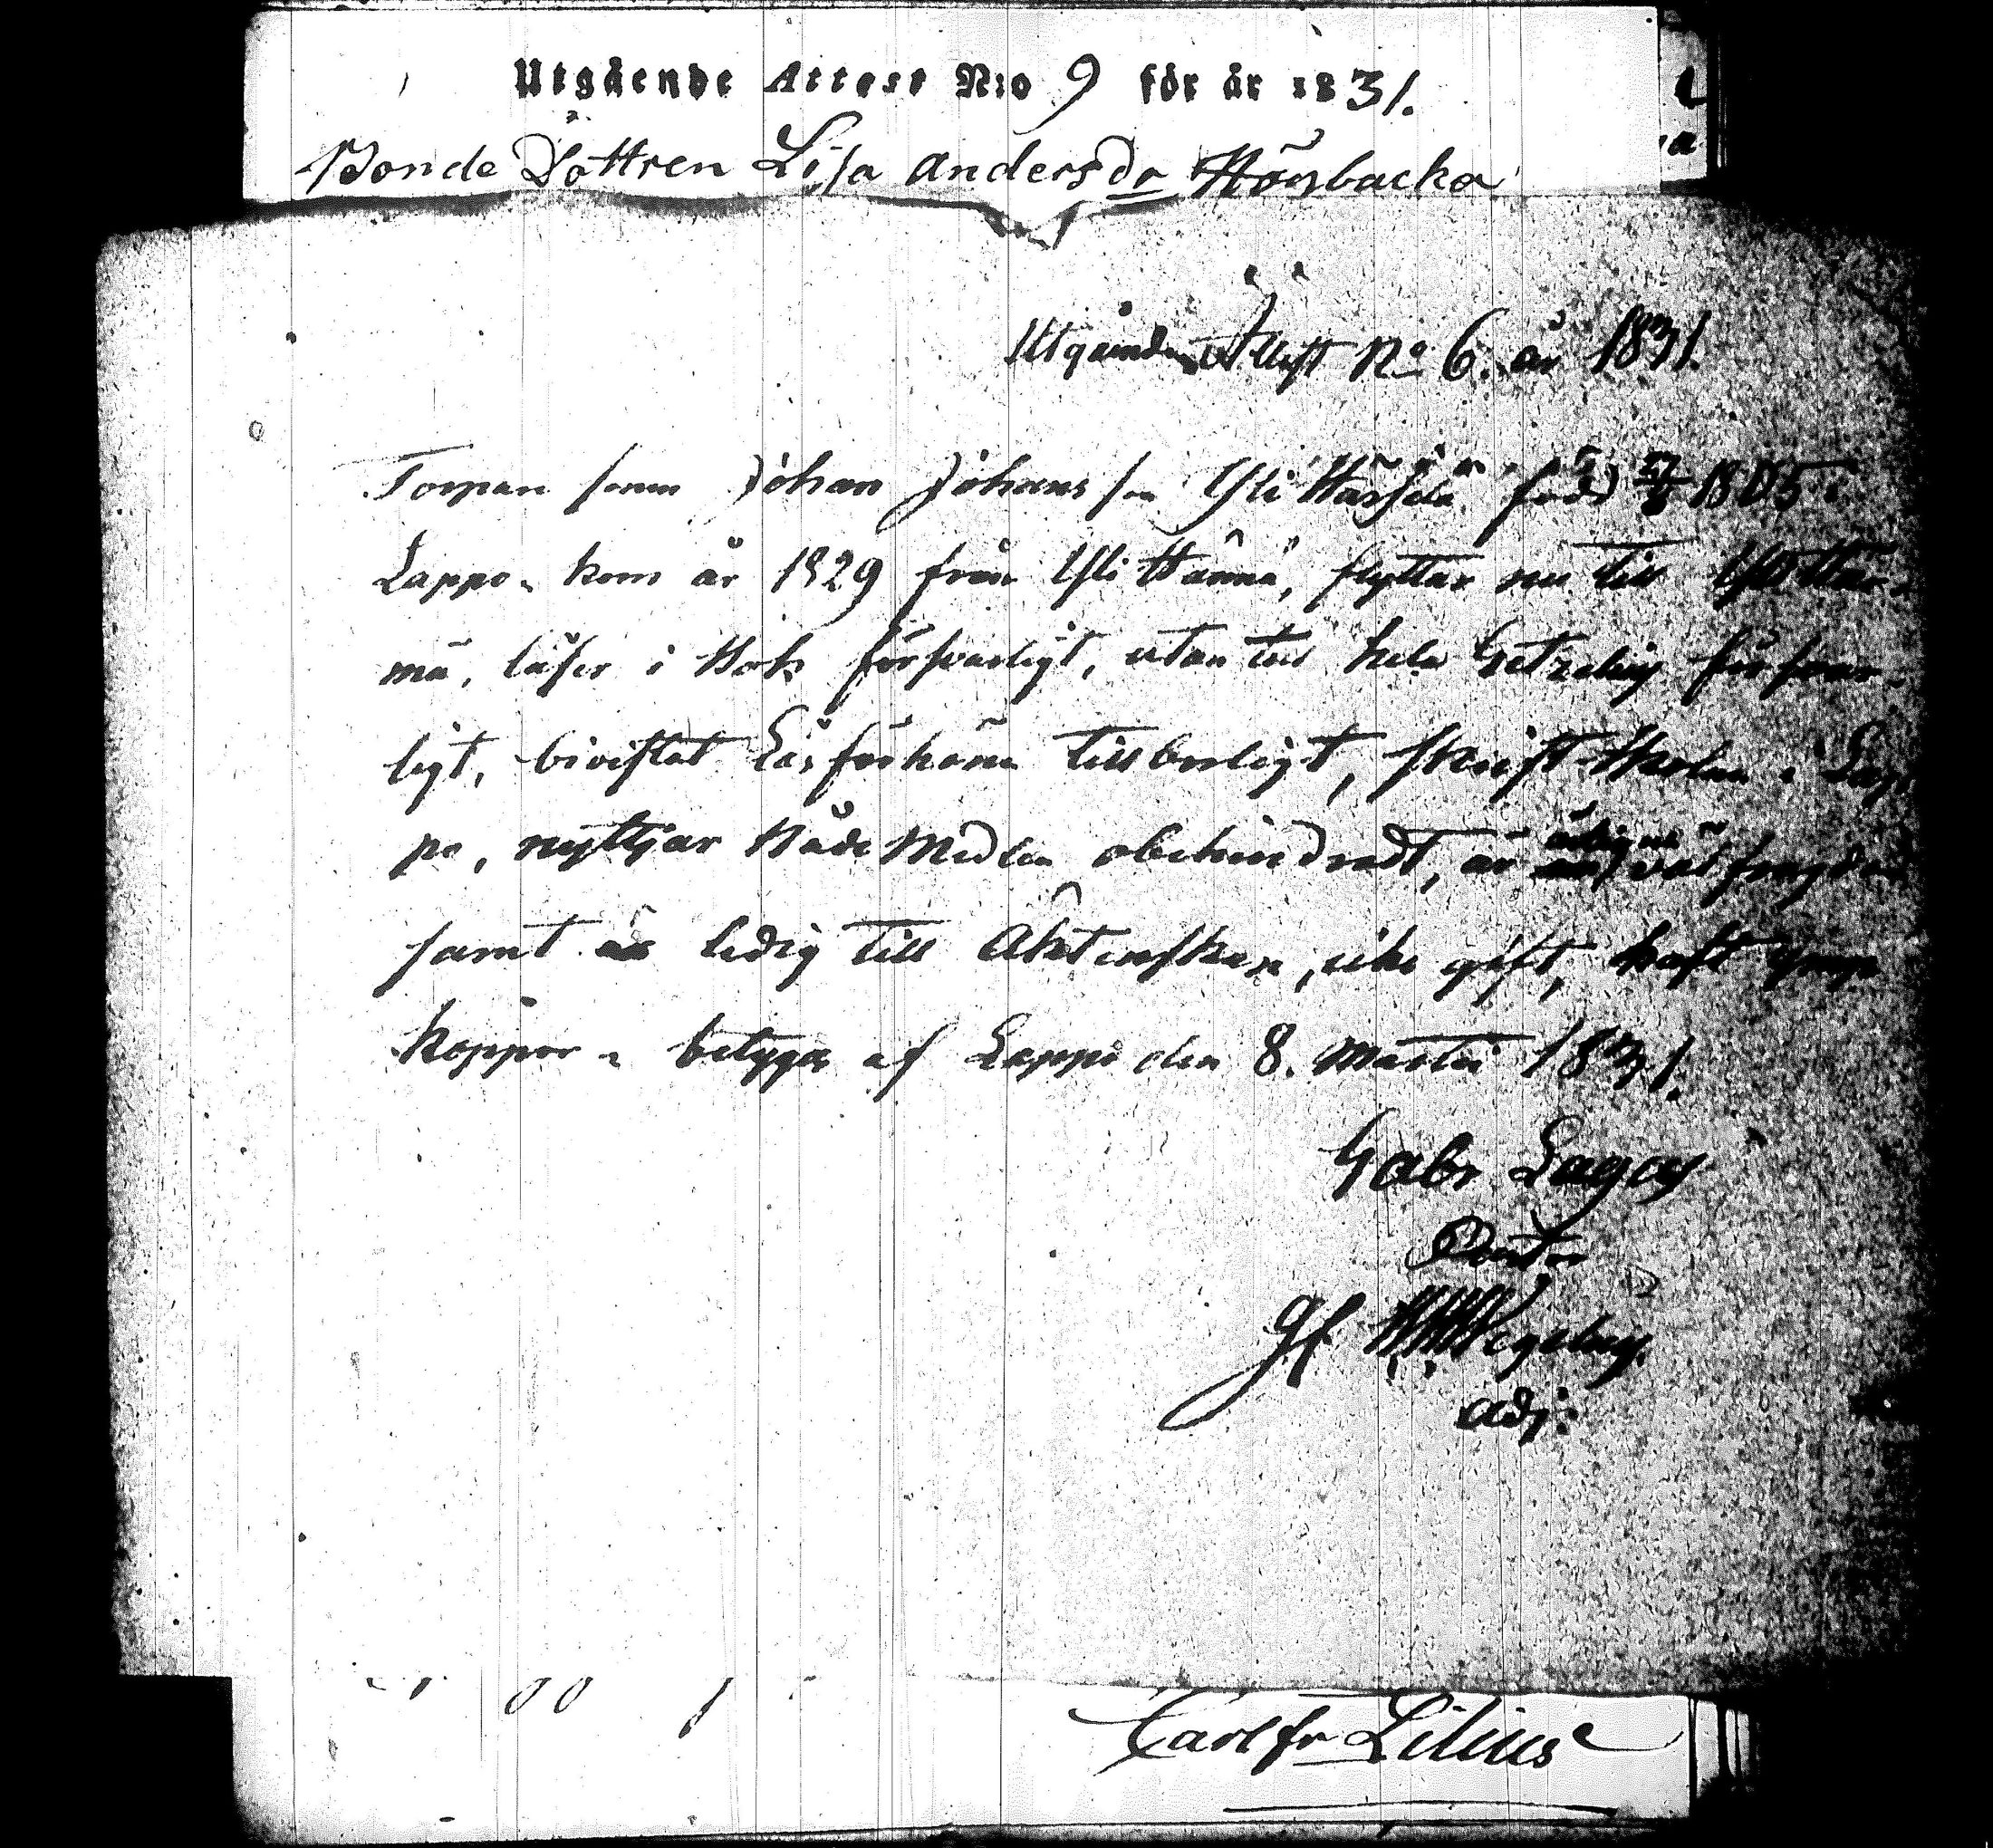 Utgående Attest N:o 9 för år 1831.
Bonde Dottren Lisa Andersdr Högbacka
Utgående Attest No 6. år 1831.
Torpare sonen Johan Johansson Yli Härsilä född 1805 i
Lappo. kom år 1829 från Yli Härmä, flyttar nu till Yli Här-
mä, läser i Bok försvarligt, utan till hela försvar-
ligt, bivistat Läsförhören tillbörligt, Skriftskolan i Lap-
po, nyttjar Nåde Medlen obehindradt, är välfrägdad
samt ledig till Äktenskap, icke gift, haft
koppor. betygar af Lappo den 8. Martii 1831.
Gabr Lagus
Adj:
Carl Fr Lilius